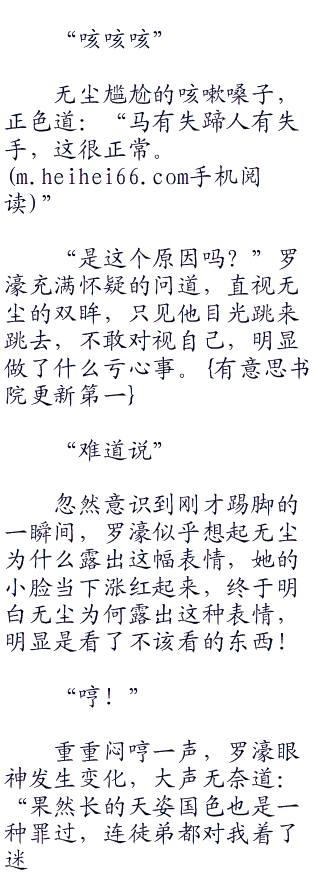 “咳咳咳”
无尘尴尬的咳嗽嗓子，
正色道：“马有失蹄人有失
手，这很正常。
(m.heihei66.com手机阅
读)”
“是这个原因吗？”罗
濠充满怀疑的问道，直视无
尘的双眸，只见他目光跳来
跳去，不敢对视自己，明显
做了什么亏心事。{有意思书
院更新第一}
“难道说”
忽然意识到刚才踢脚的
一瞬间，罗濠似乎想起无尘
为什么露出这幅表情，她的
小脸当下涨红起来，终于明
白无尘为何露出这种表情，
明显是看了不该看的东西！
“哼！”
重重闷哼一声，罗濠眼
神发生变化，大声无奈道：
“果然长的天姿国色也是一
种罪过，连徒弟都对我着了
迷